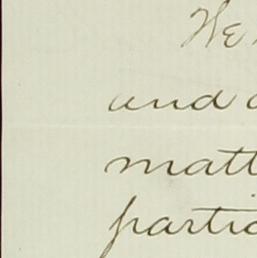 We
and
matt
partic